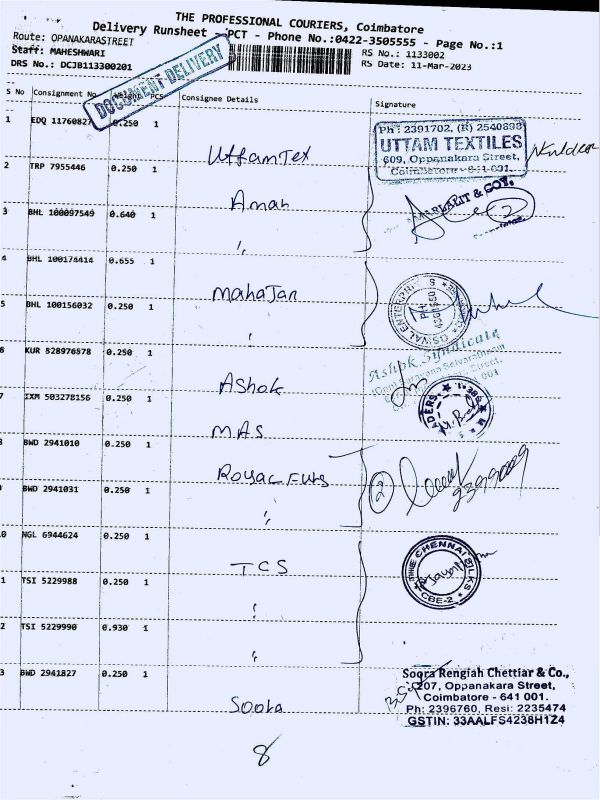 THE PROFESSIONAL COURIERS, Coimbatore
Delivery Runsheet - PCT - Phone No.:0422-3505555 - Page No.:1
Route: OPANAKARASTREET
RS No.: 1133002
Staff: MAHESHWARI
RS Date: 11-Mar-2023
DRS No.: DCJB113300201
DOCUMENT DELIVERY
S No Consignment No. Weight PCS Consignee Details Signature
1 EDQ 11760827 0.250 1 UttamTex
Ph : 2391702, (R) 2540898
UTTAM TEXTILES
609, Oppanakara Street,
Coimbatore - 641 001.
2 TRP 7955446 0.250 1 Aman
3 BHL 100097549 0.640 1 "
LALIT & COY.
2
4 BHL 100174414 0.655 1 Mahajan
OSWAL ENTERPRISES
5 BHL 100156032 0.250 1
6 KUR 828976578 0.250 1 Ashok
Ashok Syndicate
Street,
001
7 IXM 503278156 0.250 1 MAS
8 BWD 2941010 0.250 1
9 BWD 2941031 0.250 1 "
2
0 NGL 6944624 0.250 1 TCS
THE CHENNAI SILKS
CBE-2
1 TSI 5229988 0.250 1 "
2 TSI 5229990 0.930 1 "
3 BWD 2941827 0.250 1 Soora
Soora Rengiah Chettiar & Co.,
207, Oppanakara Street,
Coimbatore - 641 001.
Ph: 2396760, Resi: 2235474
GSTIN: 33AALFS4238H1Z4
8